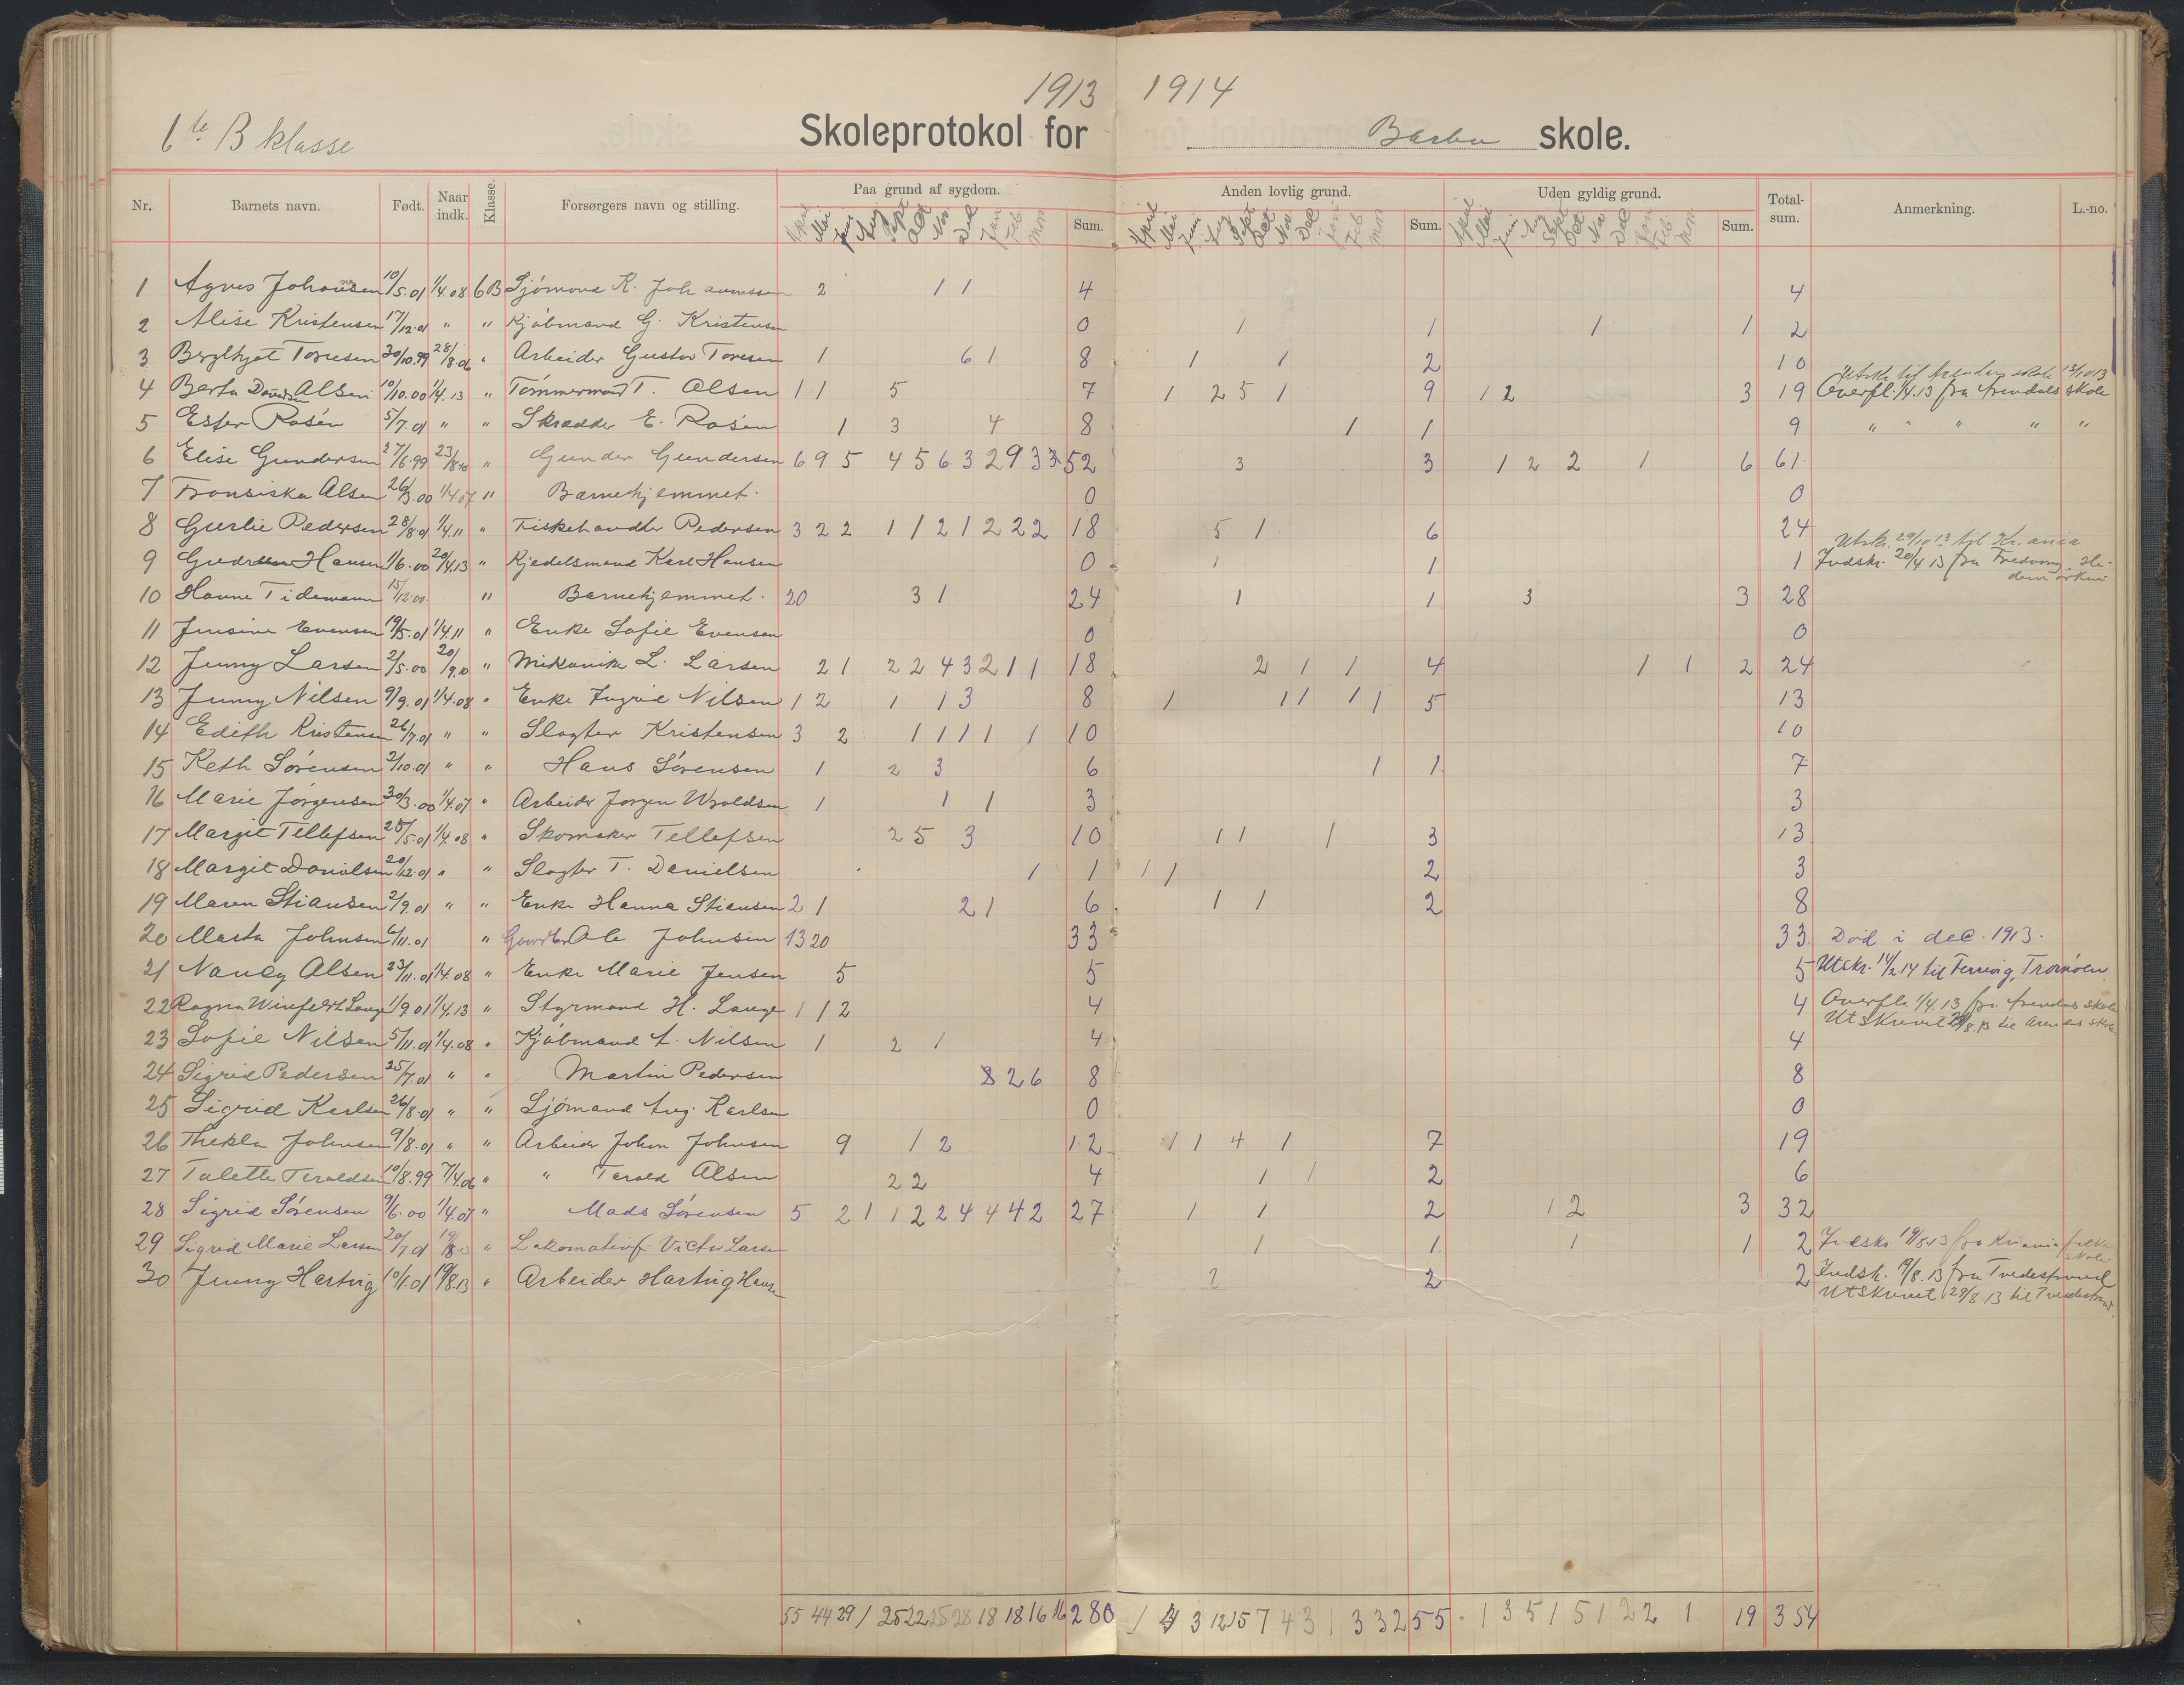 1913 1914
6te B klasse Skoleprotokol for Barbu skole.
Nr. Barnets navn. Født. Naar indk. Klasse. Forsørgers navn og stilling. Paa grund af sygdom. Sum. Anden lovlig grund. Sum. Uden gyldig grund. Sum. Total-sum. Anmerkning. L.-no.
April Mai Juni Aug Sept Oct Nov Dec Jan Feb Mars April Mai Juni Aug Sept Oct Nov Dec Jan Feb Mars April Mai Juni Aug Sept Oct Nov Dec Jan Feb Mars
1 Agnes Johannsen 10/5.01 1/4.08 6B Sjømand K. Johannessen 2 1 1 4 4
2 Alise Kristensen 17/12.01 " " Kjøbmand G. Kristensen 0 1 1 1 1 2
3 Bergljot Toresen 30/10.99 28/8.06 " Arbeider Gustav Toresen 1 6 1 8 1 1 2 10
Utskr. til Arendals skole 13/10 13
4 Berta Olsen 10/10.00 1/4.13 " Tømmermand T. Olsen 1 1 5 7 1 2 5 1 9 1 2 3 19 Overfl. 1/4.13 fra Arendals skole
5 Ester Rosén 5/7.01 " " Skrædder E. Rosén 1 3 4 8 1 1 9 " " " " "
6 Elise Gundersen 27/6.99 23/8.10 " Gunder Gundersen 6 9 5 4 5 6 3 2 9 3 3 52 3 3 1 2 2 1 6 61
7 Fransiska Olsen 26/3.00 1/4.07 " Barnehjemmet. 0 0
8 Gurlie Pedersen 28/8.01 1/4.11 " Fiskehandler Pedersen 3 2 2 1 1 2 1 2 2 2 18 5 1 6 24
Utskr. 29/10 13 til Kr.ania
9 Gudrun Hansen 1/6.00 20/4.13 " Kjedelsmand Karl Hansen 0 1 1 1 Indskr. 20/4 13 fra
10 Hanne Tidemann 15/12.00 " Barnehjemmet. 20 3 1 24 1 1 3 3 28
11 Jensine Evensen 19/5.01 1/4.11 " Enke Sofie Evensen 0 0
12 Jenny Larsen 2/5.00 20/9.10 " Mekanike L. Larsen 2 1 2 2 4 3 2 1 1 18 2 1 1 4 1 1 2 24
13 Jenny Nilsen 9/9.01 1/4.08 " Enke Ingrid Nilsen 1 2 1 1 3 8 1 1 1 1 1 5 13
14 Edith Kristensen 26/7.01 " " Slagter Kristensen 3 2 1 1 1 1 1 10 10
15 Keth Sørensen 2/10.01 " " Hans Sørensen 1 2 3 6 1 1 7
16 Marie Jørgensen 30/3.00 1/4.07 " Arbeider Jørgen Woldsen 1 1 1 3 3
17 Margit Tellefsen 28/5.01 1/4.08 " Skomaker Tellefsen 2 5 3 10 1 1 1 3 13
18 Margit Danielsen 20/12.01 " " Slagter T. Danielsen 1 1 1 1 2 3
19 Maren Stiansen 2/9.01 " " Enke Hanna Stiansen 2 1 2 1 6 1 1 2 8
20 Marta Johnsen 6/11.01 " Ole Johnsen 13 20 33 33 Død i dec. 1913.
21 Nancy Olsen 23/11.01 1/4.08 " Enke Marie Jensen 5 5 5 Utskr. 14/2 14 til Færvig, Tromøen
22 Ragna Winfeldt Lange 1/9.01 1/4.13 " Styrmand H. Lange 1 1 2 4 4 Overfl. 1/4.13 fra Arendals skole
Utskrevet 29/8.13 til Arendals skole
23 Sofie Nilsen 5/11.01 1/4.08 " Kjøbmand A. Nilsen 1 2 1 4 4
24 Sigrid Pedersen 25/7.01 " " Martin Pedersen 2 6 8 8
25 Sigrid Karlsen 26/8.01 " " Sjømand Aug. Karlsen 0 0
26 Thekla Johnsen 9/8.01 " " Arbeider John Johnsen 9 1 2 12 1 1 4 1 7 19
27 Talette Teroldsen 10/8.99 7/4.06 " " Terold Olsen 2 2 4 1 1 2 6
28 Sigrid Sørensen 9/6.00 1/4.07 " Mads Sørensen 5 2 1 1 2 2 4 4 4 2 27 1 1 2 1 2 3 32
29 Sigrid Marie Larsen 20/7.01 19/8.13 " Lokomotivf. Victor Larsen 1 1 1 1 2 Indskr. 19/8.13 fra Kr.ania folkeskole
30 Jenny Hartvig 10/1.01 19/8.13 " Arbeider Hartvig Hansen 2 2 2 Indsk. 19/8.13 fra Tvedestrand
Utskrevet 29/8 13 til Tvedestrand
55 44 29 1 25 22 25 28 18 18 16 16 280 1 4 3 12 15 7 4 3 1 3 3 2 55 1 3 5 1 5 1 2 2 1 19 354